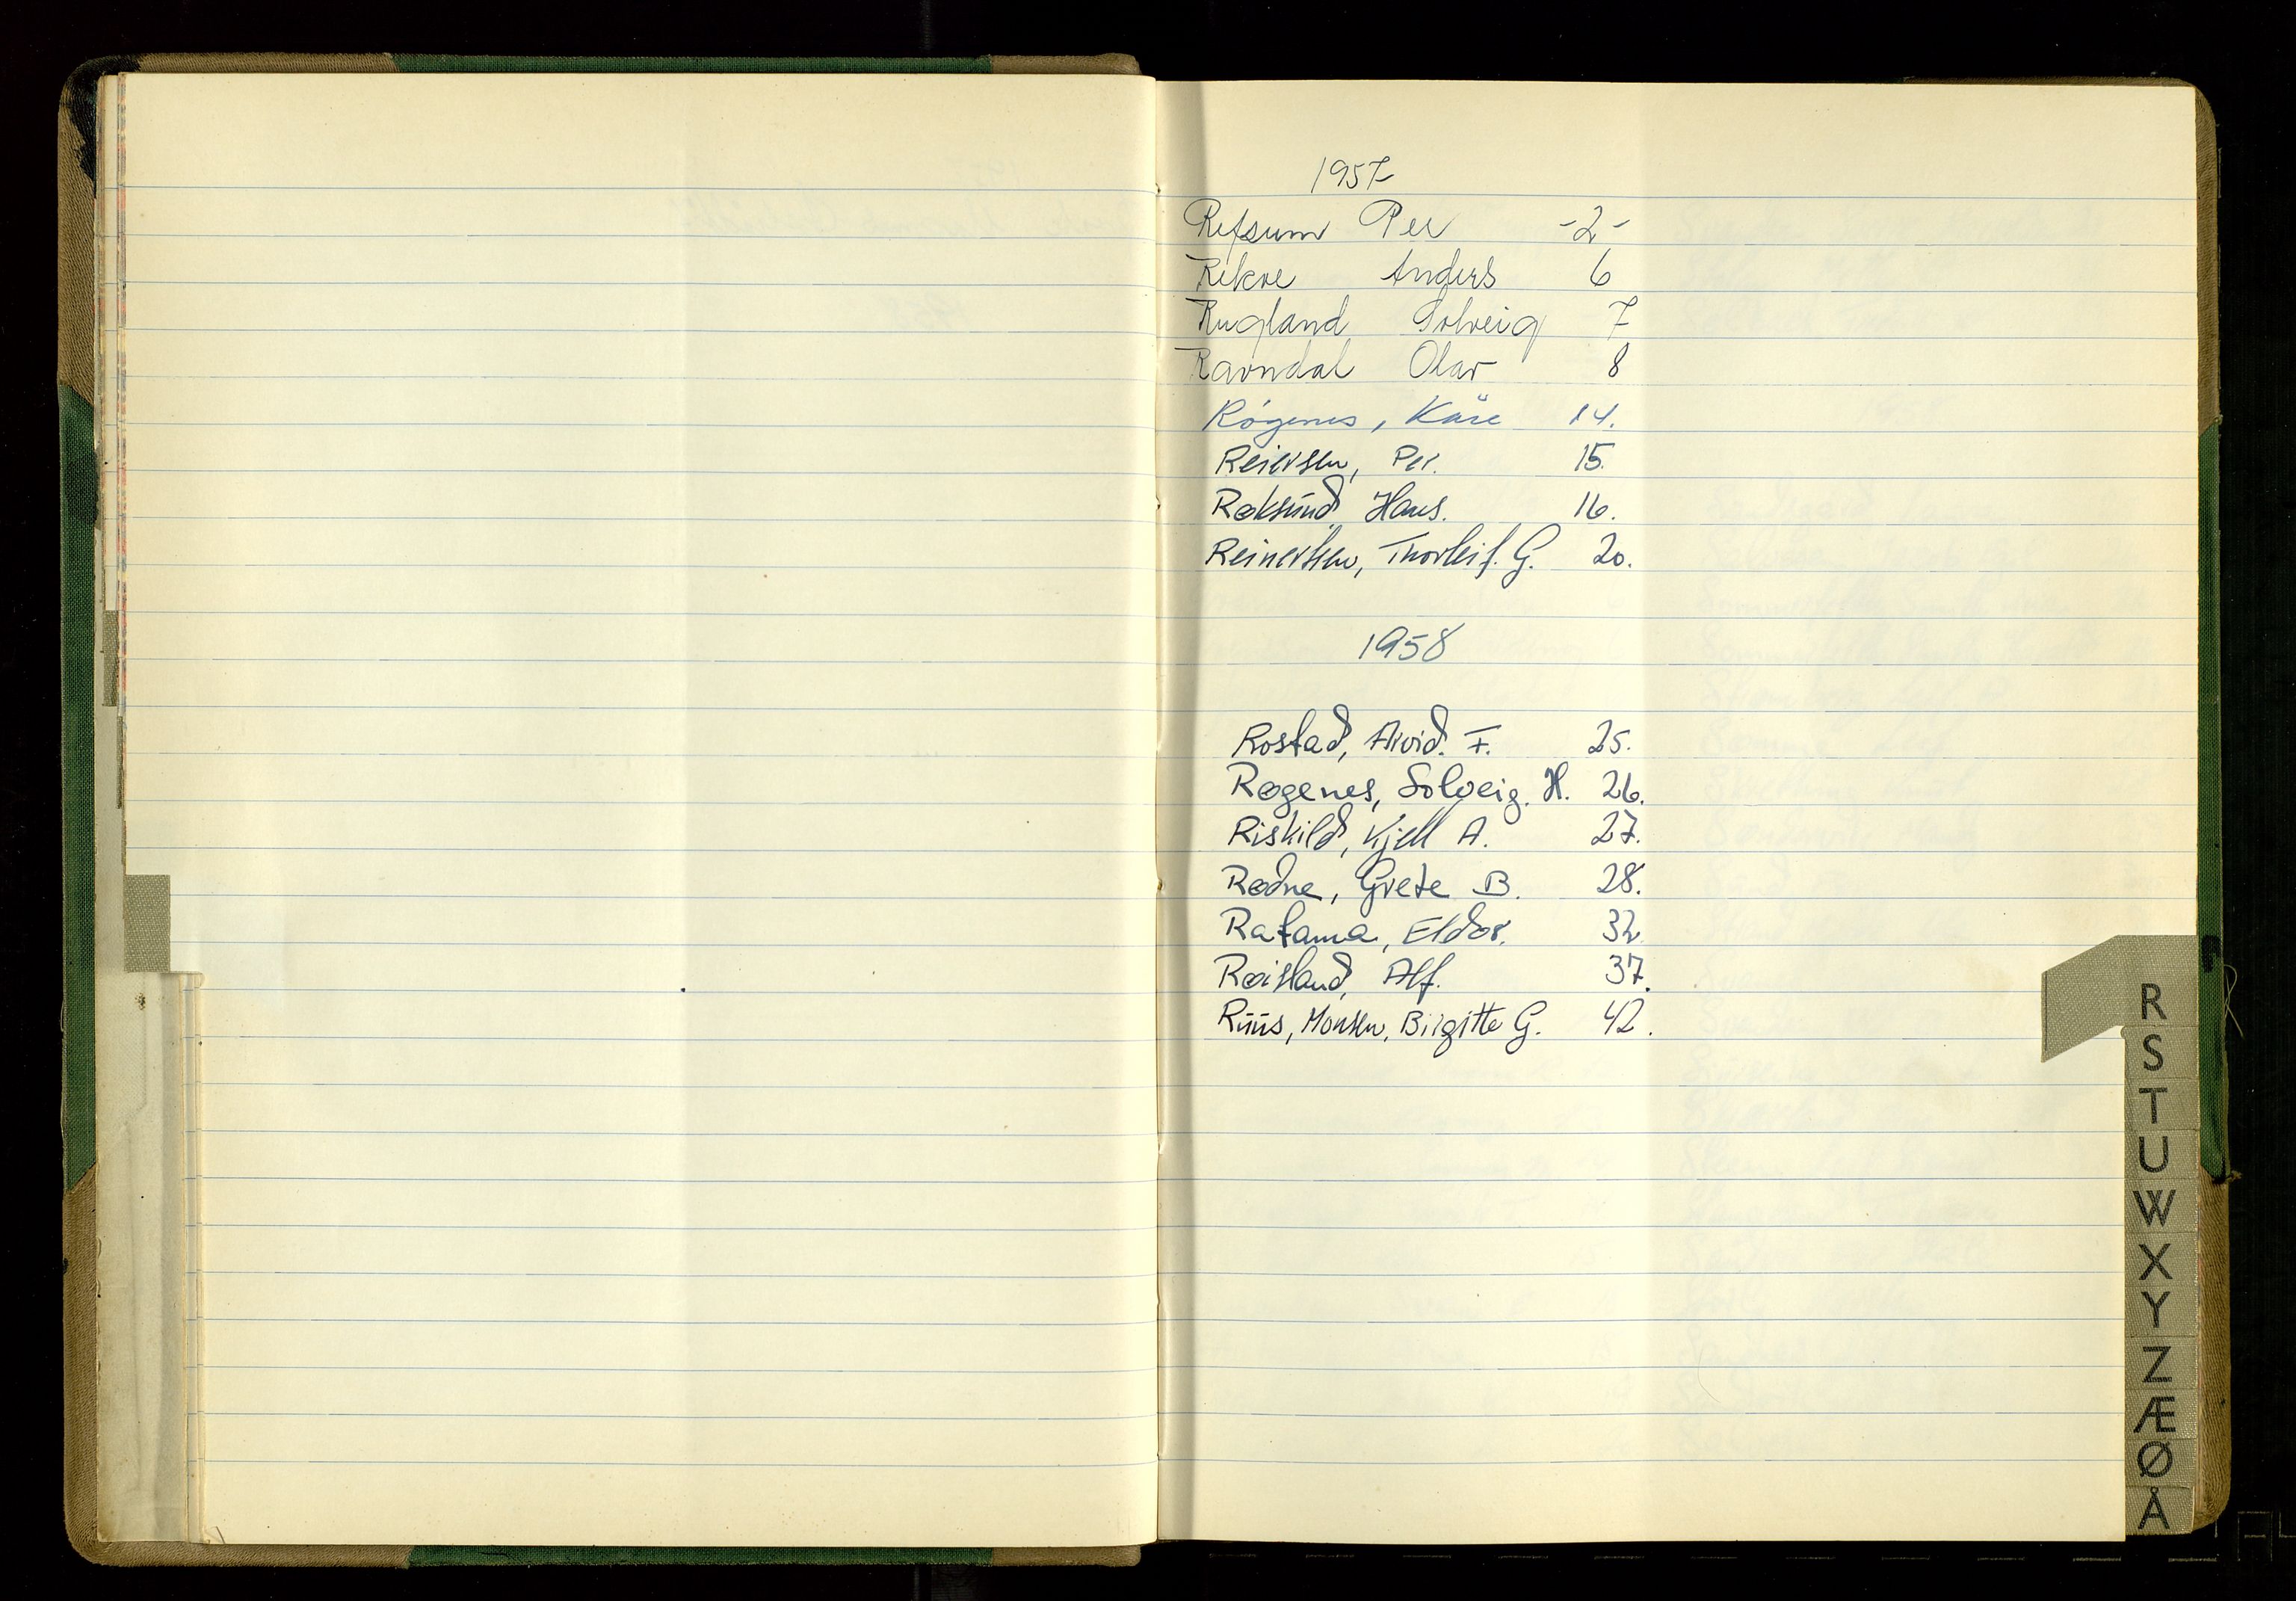 1957
Refsum Per -2-
Rekve Anders 6
Rugland Solveig 7
Ravndal Olav 8
Røgenes, Kåre 14.
Reiersen, Per. 15.
Røksund, Hans. 16.
Reinertsen, Thorleif. G. 20.
1958
Rostad, Arvid. F. 25.
Røgenes, Solveig. H. 26.
Riskild, Kjell A. 27.
Rødne, Grete B. 28.
Ratama, Eldor. 32.
Røisland, Alf. 37.
Ruus, Monsen, Birgitte G. 42.
R
S
T
U
W
X
Y
Z
Æ
Ø
Å